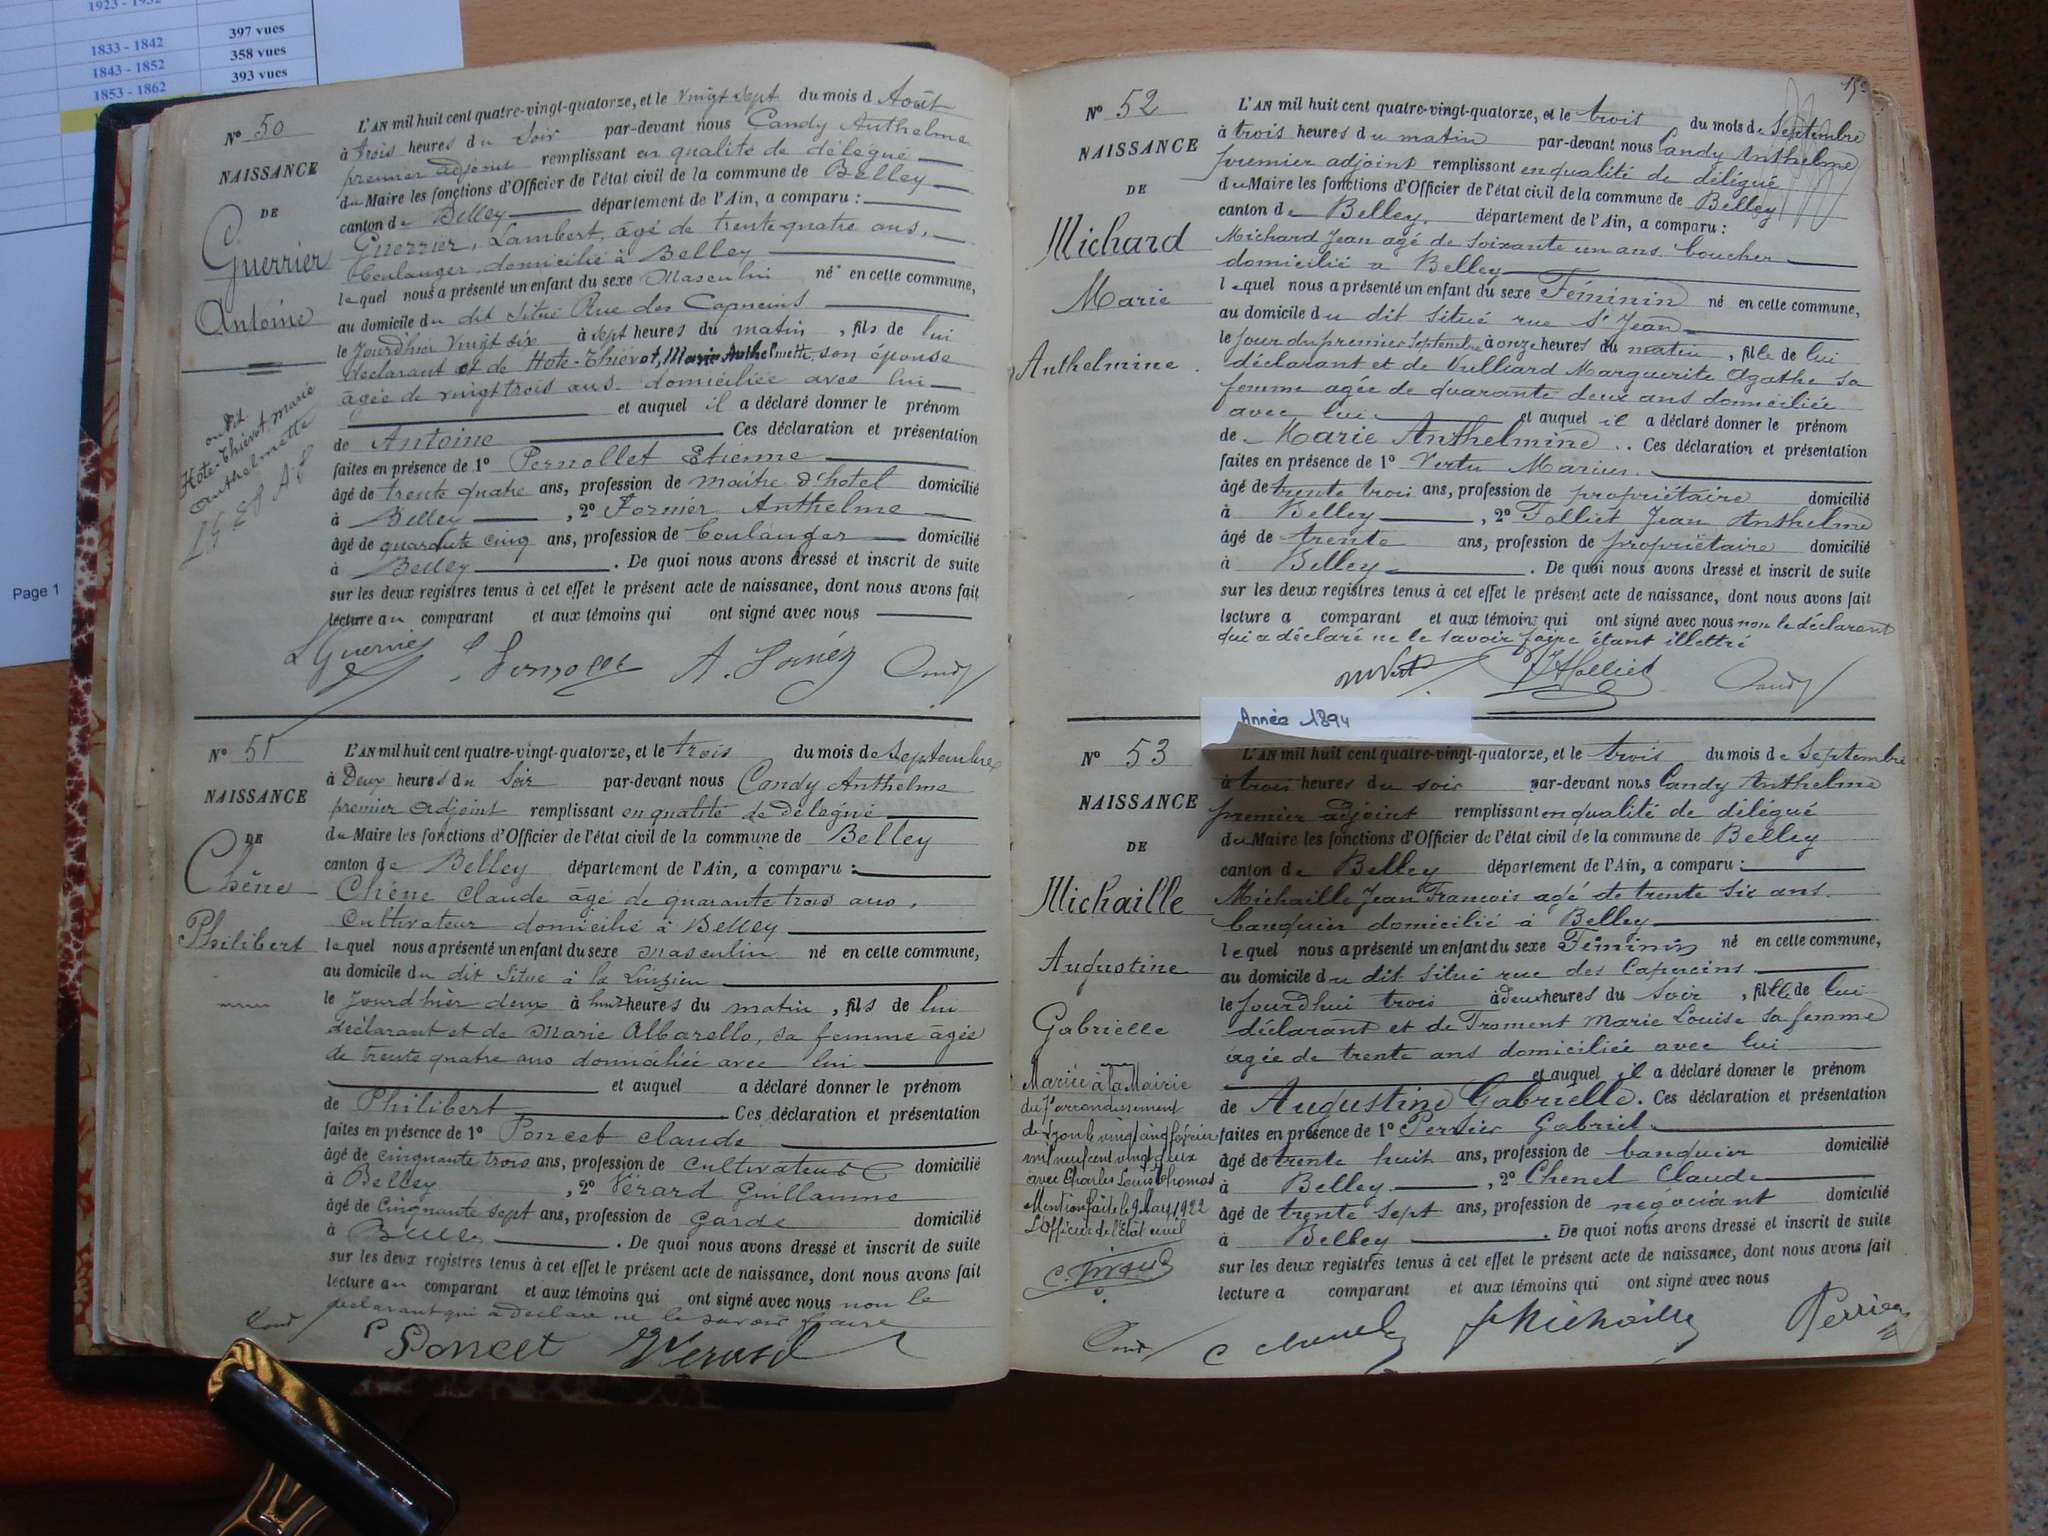 1833 - 1842 397 vues
1843 - 1852 358 vues
1853 - 1862 393 vues
Page 1
N° 50
NAISSANCE
DE
Guerrier
Antoine
on dit
Hôte-Thiévot marie
Anthelmette
L'AN mil huit cent quatre-vingt-quatorze, et le vingt sept du mois d Août
à trois heures du Soir par-devant nous Candy Anthelme
premier adjoint remplissant en qualité de délégué
du Maire les fonctions d'Officier de l'état civil de la commune de Belley
canton de Belley département de l'Ain, a comparu :
Guerrier, Lambert, âgé de trente quatre ans,
boulanger domicilié à Belley
lequel nous a présenté un enfant du sexe Masculin né en cette commune,
au domicile du dit situé Rue des Capucins
le Jourd'hier vingt six à sept heures du matin, fils de lui
déclarant et de Hôte-Thiévot, Marie Anthelmette, son épouse
âgée de vingt trois ans domiciliée avec lui
et auquel il a déclaré donner le prénom
de Antoine Ces déclaration et présentation
faites en présence de 1° Pernollet Etienne
âgé de trente quatre ans, profession de maitre d'hotel domicilié
à Belley, 2° Fornier Anthelme
âgé de quarante cinq ans, profession de boulanger domicilié
à Belley. De quoi nous avons dressé et inscrit de suite
sur les deux registres tenus à cet effet le présent acte de naissance, dont nous avons fait
lecture au comparant et aux témoins qui ont signé avec nous
N° 51
NAISSANCE
DE
Chêne
Philibert
L'AN mil huit cent quatre-vingt-quatorze, et le trois du mois de Septembre
à Deux heures du Soir par-devant nous Candy Anthelme
premier adjoint remplissant en qualité de délégué
du Maire les fonctions d'Officier de l'état civil de la commune de Belley
canton de Belley département de l'Ain, a comparu :
Chêne Claude âgé de quarante trois ans,
Cultivateur domicilié à Belley
lequel nous a présenté un enfant du sexe masculin né en cette commune,
au domicile du dit situé à la
le Jourd'hier deux à huit heures du matin, fils de lui
déclarant et de Marie Albarello, sa femme âgée
de trente quatre ans domiciliée avec lui
et auquel a déclaré donner le prénom
de Philibert Ces déclaration et présentation
faites en présence de 1° Poncet Claude
âgé de cinquante trois ans, profession de cultivateur domicilié
à Belley, 2° Vérard Guillaume
âgé de Cinquante sept ans, profession de Garde domicilié
à Belley. De quoi nous avons dressé et inscrit de suite
sur les deux registres tenus à cet effet le présent acte de naissance, dont nous avons fait
lecture au comparant et aux témoins qui ont signé avec nous non le
déclarant qui a déclaré ne le savoir faire
Poncet Vérard
N° 52
NAISSANCE
DE
Michard
Marie
Anthelmine
L'AN mil huit cent quatre-vingt-quatorze, et le trois du mois de Septembre
à trois heures du matin par-devant nous Candy Anthelme
premier adjoint remplissant en qualité de délégué
du Maire les fonctions d'Officier de l'état civil de la commune de Belley
canton de Belley département de l'Ain, a comparu :
Michard Jean agé de soixante un ans boucher
domicilié à Belley
lequel nous a présenté un enfant du sexe Féminin né en cette commune,
au domicile du dit situé rue St Jean
le Jour du premier Septembre à onze heures du matin, fille de lui
déclarant et de Vulliard Marguerite Agathe sa
femme agée de quarante deux ans domiciliée
avec lui et auquel il a déclaré donner le prénom
de Marie Anthelmine. Ces déclaration et présentation
faites en présence de 1° Vertu Marius
âgé de trente trois ans, profession de propriétaire domicilié
à Belley, 2° Folliet Jean Anthelme
âgé de trente ans, profession de propriétaire domicilié
à Belley. De quoi nous avons dressé et inscrit de suite
sur les deux registres tenus à cet effet le présent acte de naissance, dont nous avons fait
lecture a comparant et aux témoins qui ont signé avec nous non le déclarant
qui a déclaré ne le savoir faire étant illettré
Année 1894
N° 53
NAISSANCE
DE
Michaille
Augustine
Gabrielle
Mariée à la Mairie
du arrondissement
de Lyon le vingt cinq février
mil neuf cent vingt deux
avec Charles Louis Thomas
Mention faite le 9 Mars 1922
L'Officier de l'état civil
L'AN mil huit cent quatre-vingt-quatorze, et le trois du mois de Septembre
à trois heures du soir par-devant nous Candy Anthelme
premier adjoint remplissant en qualité de délégué
du Maire les fonctions d'Officier de l'état civil de la commune de Belley
canton de Belley département de l'Ain, a comparu :
Michaille Jean François agé de trente six ans
banquier domicilié à Belley
lequel nous a présenté un enfant du sexe Féminin né en cette commune,
au domicile du dit situé rue des Capucins
le Jourd'hui trois à deux heures du soir, fille de lui
déclarant et de Froment Marie Louise sa femme
agée de trente ans domiciliée avec lui
et auquel il a déclaré donner le prénom
de Augustine Gabrielle. Ces déclaration et présentation
faites en présence de 1° Perrier Gabriel
âgé de trente huit ans, profession de banquier domicilié
à Belley, 2° Chenel Claude
âgé de trente sept ans, profession de négociant domicilié
à Belley. De quoi nous avons dressé et inscrit de suite
sur les deux registres tenus à cet effet le présent acte de naissance, dont nous avons fait
lecture a comparant et aux témoins qui ont signé avec nous
Perrier